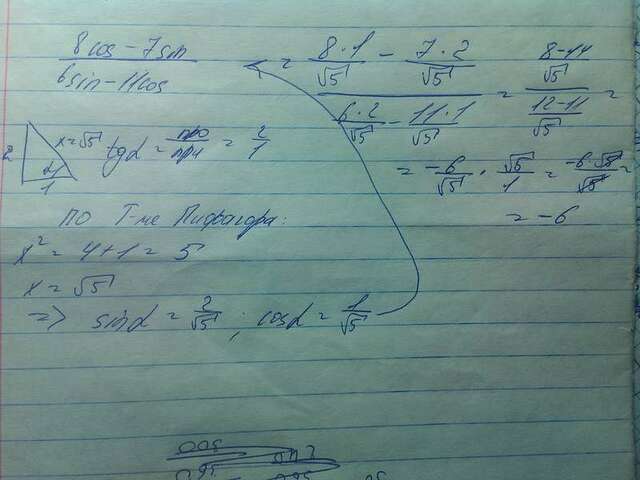 8cos - 7sin / 6sin - 11cos = (8·1/√5 - 7·2/√5) / (6·2/√5 - 11·1/√5) = ((8-14)/√5) / ((12-11)/√5) =
= -6/√5 · √5/1 = -6·√5/√5 =
= -6
2 x=√5 α 1 tgα = про/при = 2/1
по Т-ме Пифагора:
x² = 4+1 = 5
x = √5
=> sinα = 2/√5 ; cosα = 1/√5